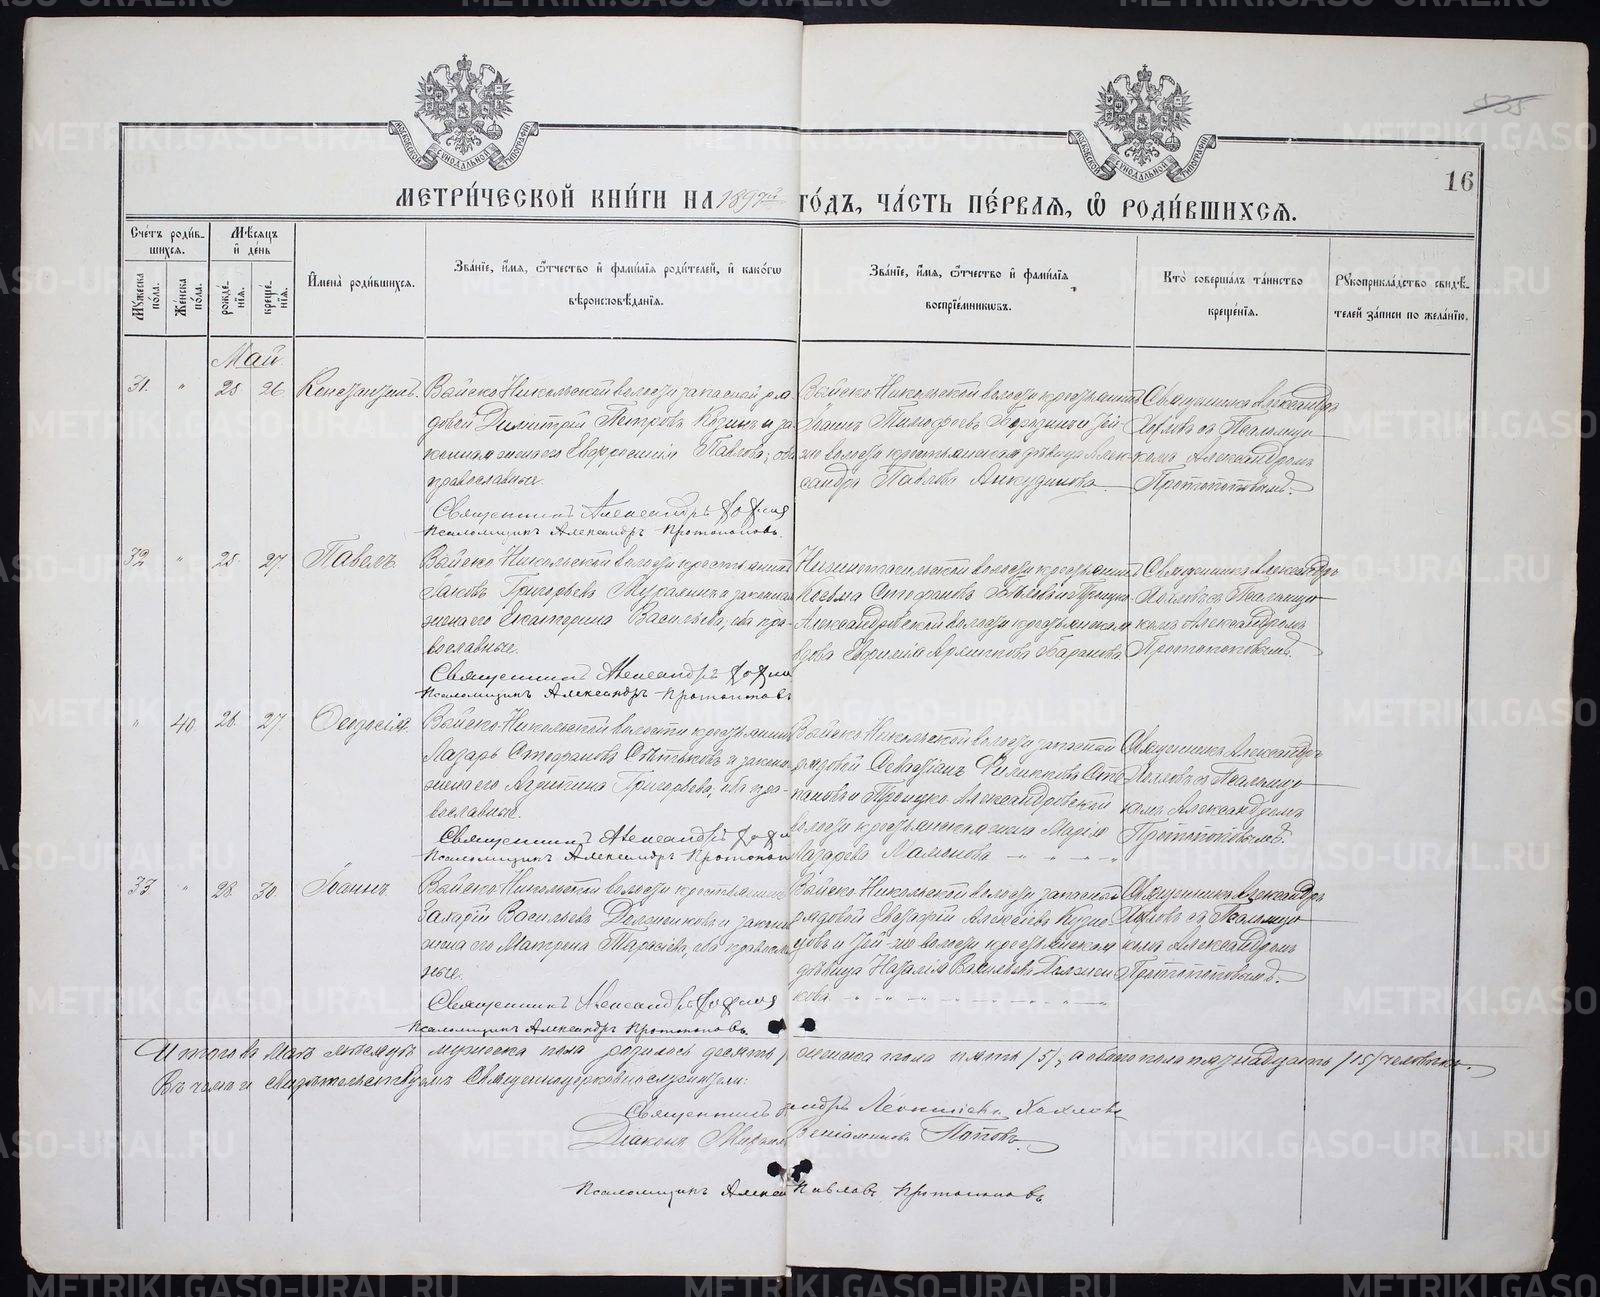 535
16
МОСКОВСКОЙ СѴНОДАЛЬНОЙ ТИПОГРАФІИ
МОСКОВСКОЙ СѴНОДАЛЬНОЙ ТИПОГРАФІИ
МЕТРИ́ЧЕСКОЙ КНИ́ГИ НА 1897й ГО́ДЪ, ЧА́СТЬ ПЕ́РВАЯ, Ѿ РОДИ́ВШИХСЯ.
Сче́тъ роди́в-
шихся.
Мѣ́сяцъ
и҆ де́нь
Му́жеска по́ла.
Же́нска по́ла.
рожде́нїя.
креще́нїя.
И҆мена̀ роди́вшихся.
Зва́нїе, и҆́мя, ѻ҆́тчество и҆ фами́лїя роди́телей, и҆ како́гѡ
вѣроисповѣ́данїя.
Зва́нїе, и҆́мя, ѻ҆́тчество и҆ фами́лїя
воспрїе́мникѡвъ.
Кто̀ соверша́лъ та́инство
креще́нїя.
Рꙋкоприкла́дство свидѣ́-
телей за́писи по жела́нїю.
Май
31. " 25. 26. Константинъ.
Войско-Никольской волости запасной ря-
довой Димитрій Петровъ и за-
конная жена его Евфросинія Павлова; оба
православные.
Священникъ Александръ Хохловъ
Псаломщикъ Александръ Протопоповъ.
Войско-Никольской волости крестьянинъ
и той-
же волости крестьянская дѣвица Алек-
сандра Павлова Анкудинова
Священникъ Александръ
Хохловъ съ Псаломщи-
комъ Александромъ
Протопоповымъ.
32 " 25. 27. Павелъ
Войско-Никольской волости крестьянинъ
Іаковъ Григорьевъ и законная
жена его Екатерина Васильева, оба пра-
вославные.
Священникъ Александръ Хохловъ
Псаломщикъ Александръ Протопоповъ
волости крестьянинъ
Косьма Стефановъ и Троицко-
Александровской волости крестьянская
вдова Баранова
Священникъ Александръ
Хохловъ съ Псаломщи-
комъ Александромъ
Протопоповымъ.
" 40. 26. 27. Ѳеодосія.
Войско-Никольской волости крестьянинъ
Лазарь Стефановъ и законная
жена его Григорьева, оба пра-
вославные.
Священникъ Александръ Хохловъ
Псаломщикъ Александръ Протопоповъ
Войско-Никольской волости запасной
рядовой Севастіанъ Филипповъ Сте-
пановъ и Троицко-Александровской
волости крестьянская жена Марія
Лазарева Мамонова
Священникъ Александръ
Хохловъ съ Псаломщи-
комъ Александромъ
Протопоповымъ.
33. " 28. 30. Іоаннъ.
Войско-Никольской волости крестьянинъ
Захарій Васильевъ Долженковъ и законная
жена его Матрона Тарасіева, оба православ-
ные.
Священникъ Александръ Хохловъ
Псаломщикъ Александръ Протопоповъ.
Войско-Никольской волости запасный
рядовой Евстафій Алексѣевъ Кузне-
цовъ и той-же волости крестьянская
дѣвица Наталія Васильева Должен-
кова
Священникъ Александръ
Хохловъ съ Псаломщи-
комъ Александромъ
Протопоповымъ.
Итого въ Маѣ мѣсяцѣ мужеска пола родилось десять женска пола пять /5/, а обоего пола пятнадцать /15/ человѣкъ.
Въ чемъ и свидѣтельствуемъ Священноцерковнослужители:
Священникъ Леонтіевъ Хохловъ
Діаконъ Веніаминовъ Поповъ.
Псаломщикъ Павловъ Протопоповъ
METRIKI.GASO-URAL.RU